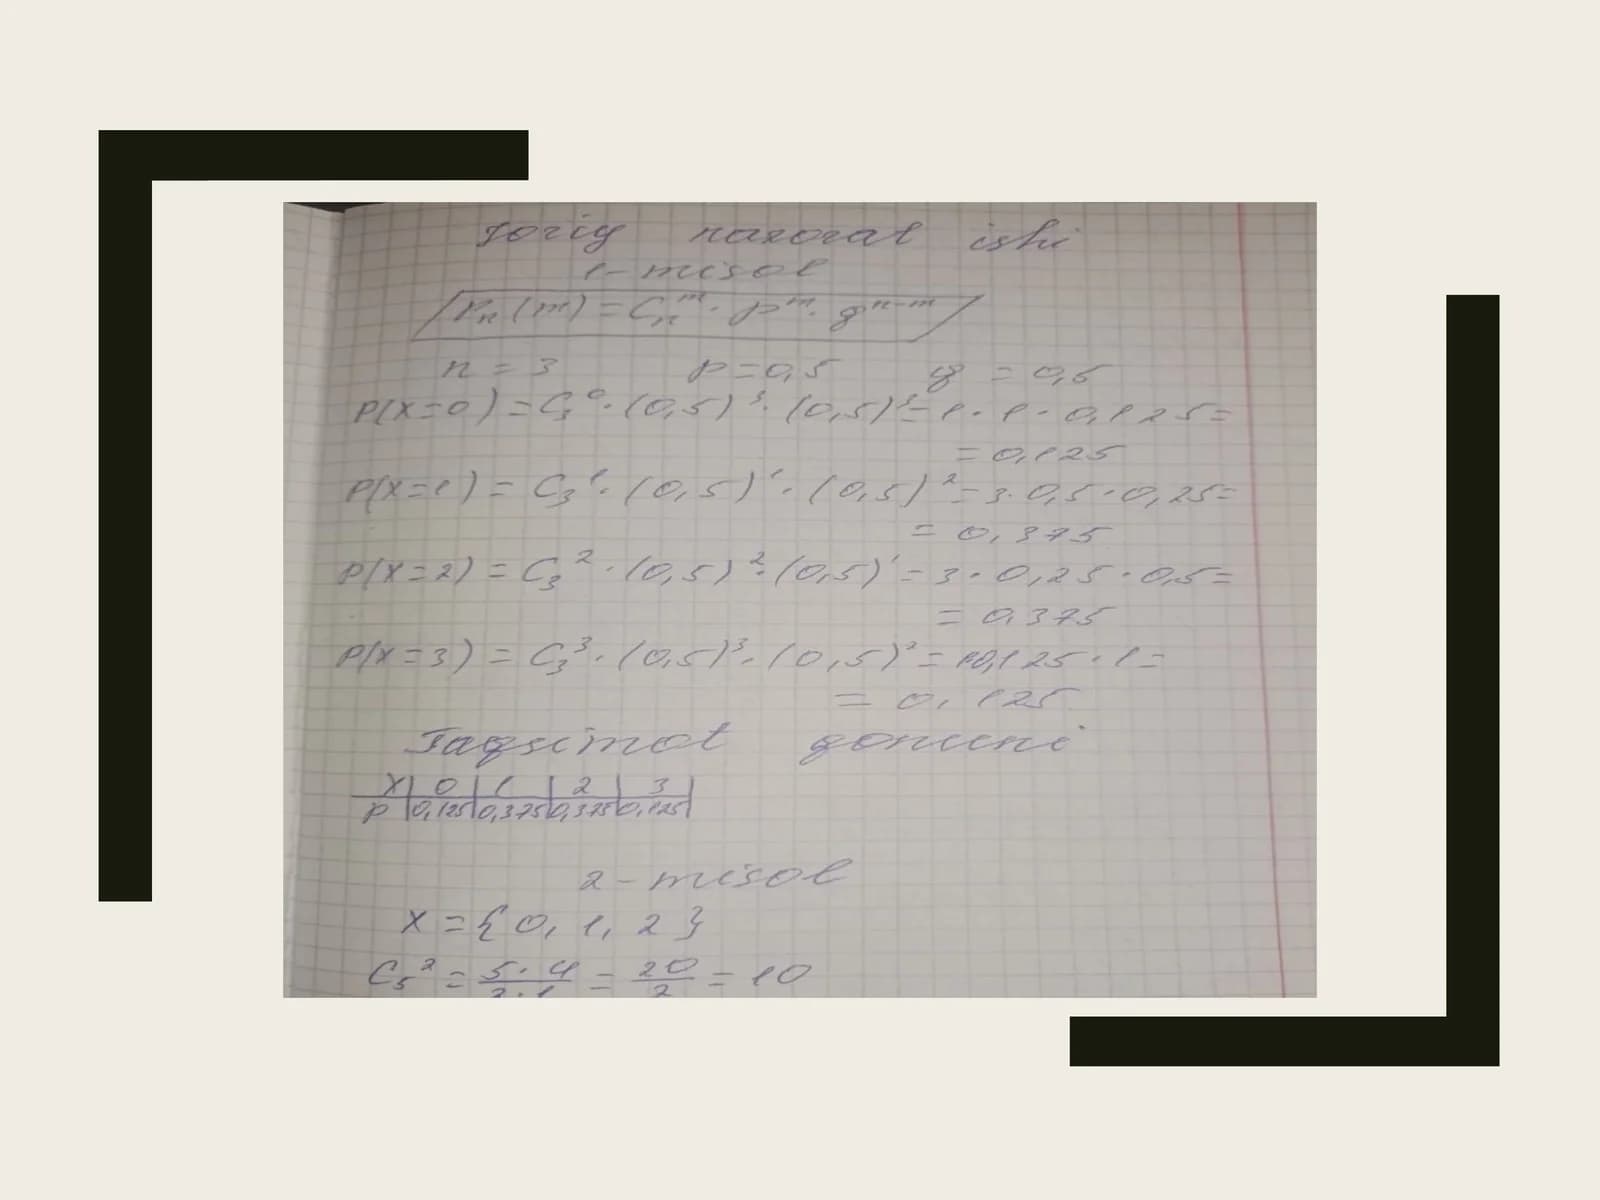 Joriy nazorat ishi
1-misol
Pₙ(m) = Cₙᵐ · pᵐ · qⁿ⁻ᵐ
n = 3 p = 0,5 q = 0,5
P(X=0) = C₃⁰ · (0,5)³ · (0,5)³ = 1 · 1 · 0,125 =
= 0,125
P(X=1) = C₃¹ · (0,5)¹ · (0,5)² = 3 · 0,5 · 0,25 =
= 0,375
P(X=2) = C₃² · (0,5)² · (0,5)¹ = 3 · 0,25 · 0,5 =
= 0,375
P(X=3) = C₃³ · (0,5)³ · (0,5) = 0,125 · 1 =
= 0,125
Taqsimot qonuni
X 0 1 2 3
P 0,125 0,375 0,375 0,125
2-misol
X = {0, 1, 2}
C₅² = 5·4/2·1 = 20/2 = 10